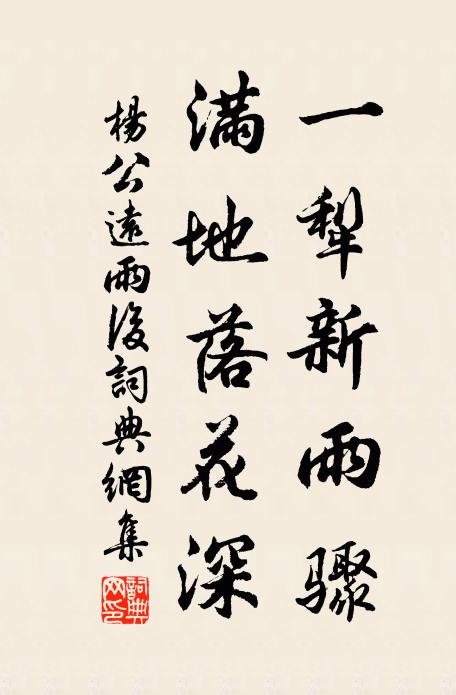 一犂新雨驟
滿地落花深
楊公遠雨後詞典網集
詞典網印